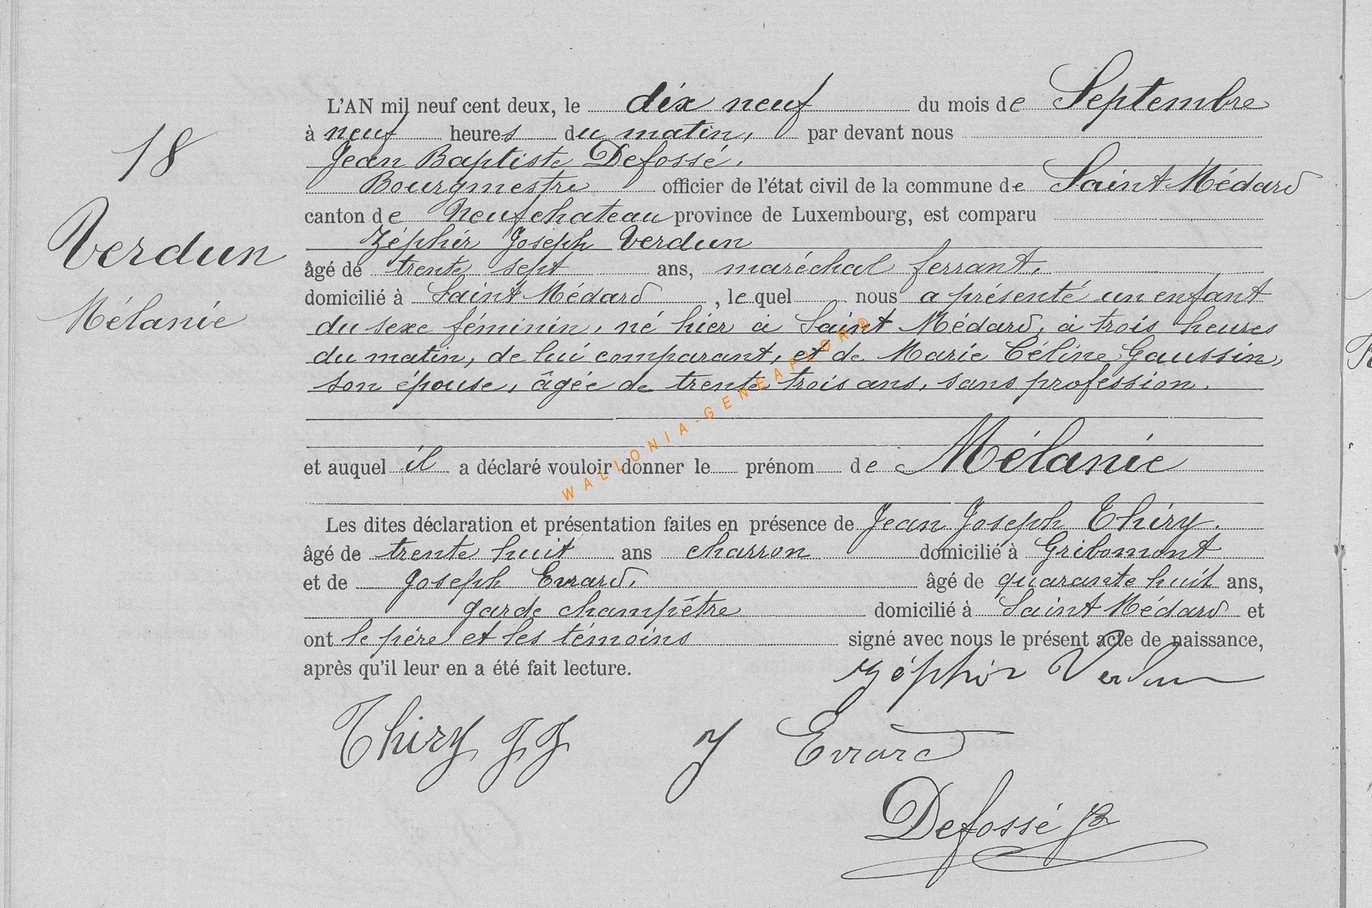 18
Verdun
Mélanie
L'AN mil neuf cent deux, le dix neuf du mois de Septembre
à neuf heures du matin, par devant nous
Jean Baptiste Defossé,
Bourgmestre officier de l'état civil de la commune de Saint Médard
canton de Neufchateau province de Luxembourg, est comparu
Zéphir Joseph Verdun
âgé de trente sept ans, maréchal ferrant,
domicilié à Saint Médard, le quel nous a présenté un enfant
du sexe féminin, né hier à Saint Médard, à trois heures
du matin, de lui comparant, et de Marie Céline Gaussin,
son épouse, âgée de trente trois ans, sans profession.
et auquel il a déclaré vouloir donner le prénom de Mélanie
Les dites déclaration et présentation faites en présence de Jean Joseph Thiry.
âgé de trente huit ans charron domicilié à Gribomont
et de Joseph Evrard, âgé de quarante huit ans,
garde champêtre domicilié à Saint Médard et
ont le père et les témoins signé avec nous le présent acte de naissance,
après qu'il leur en a été fait lecture.
Zéphir Verdun
Thiry J J J Evrard
Defossé JB
WALLONIA-GENEAPLOR®